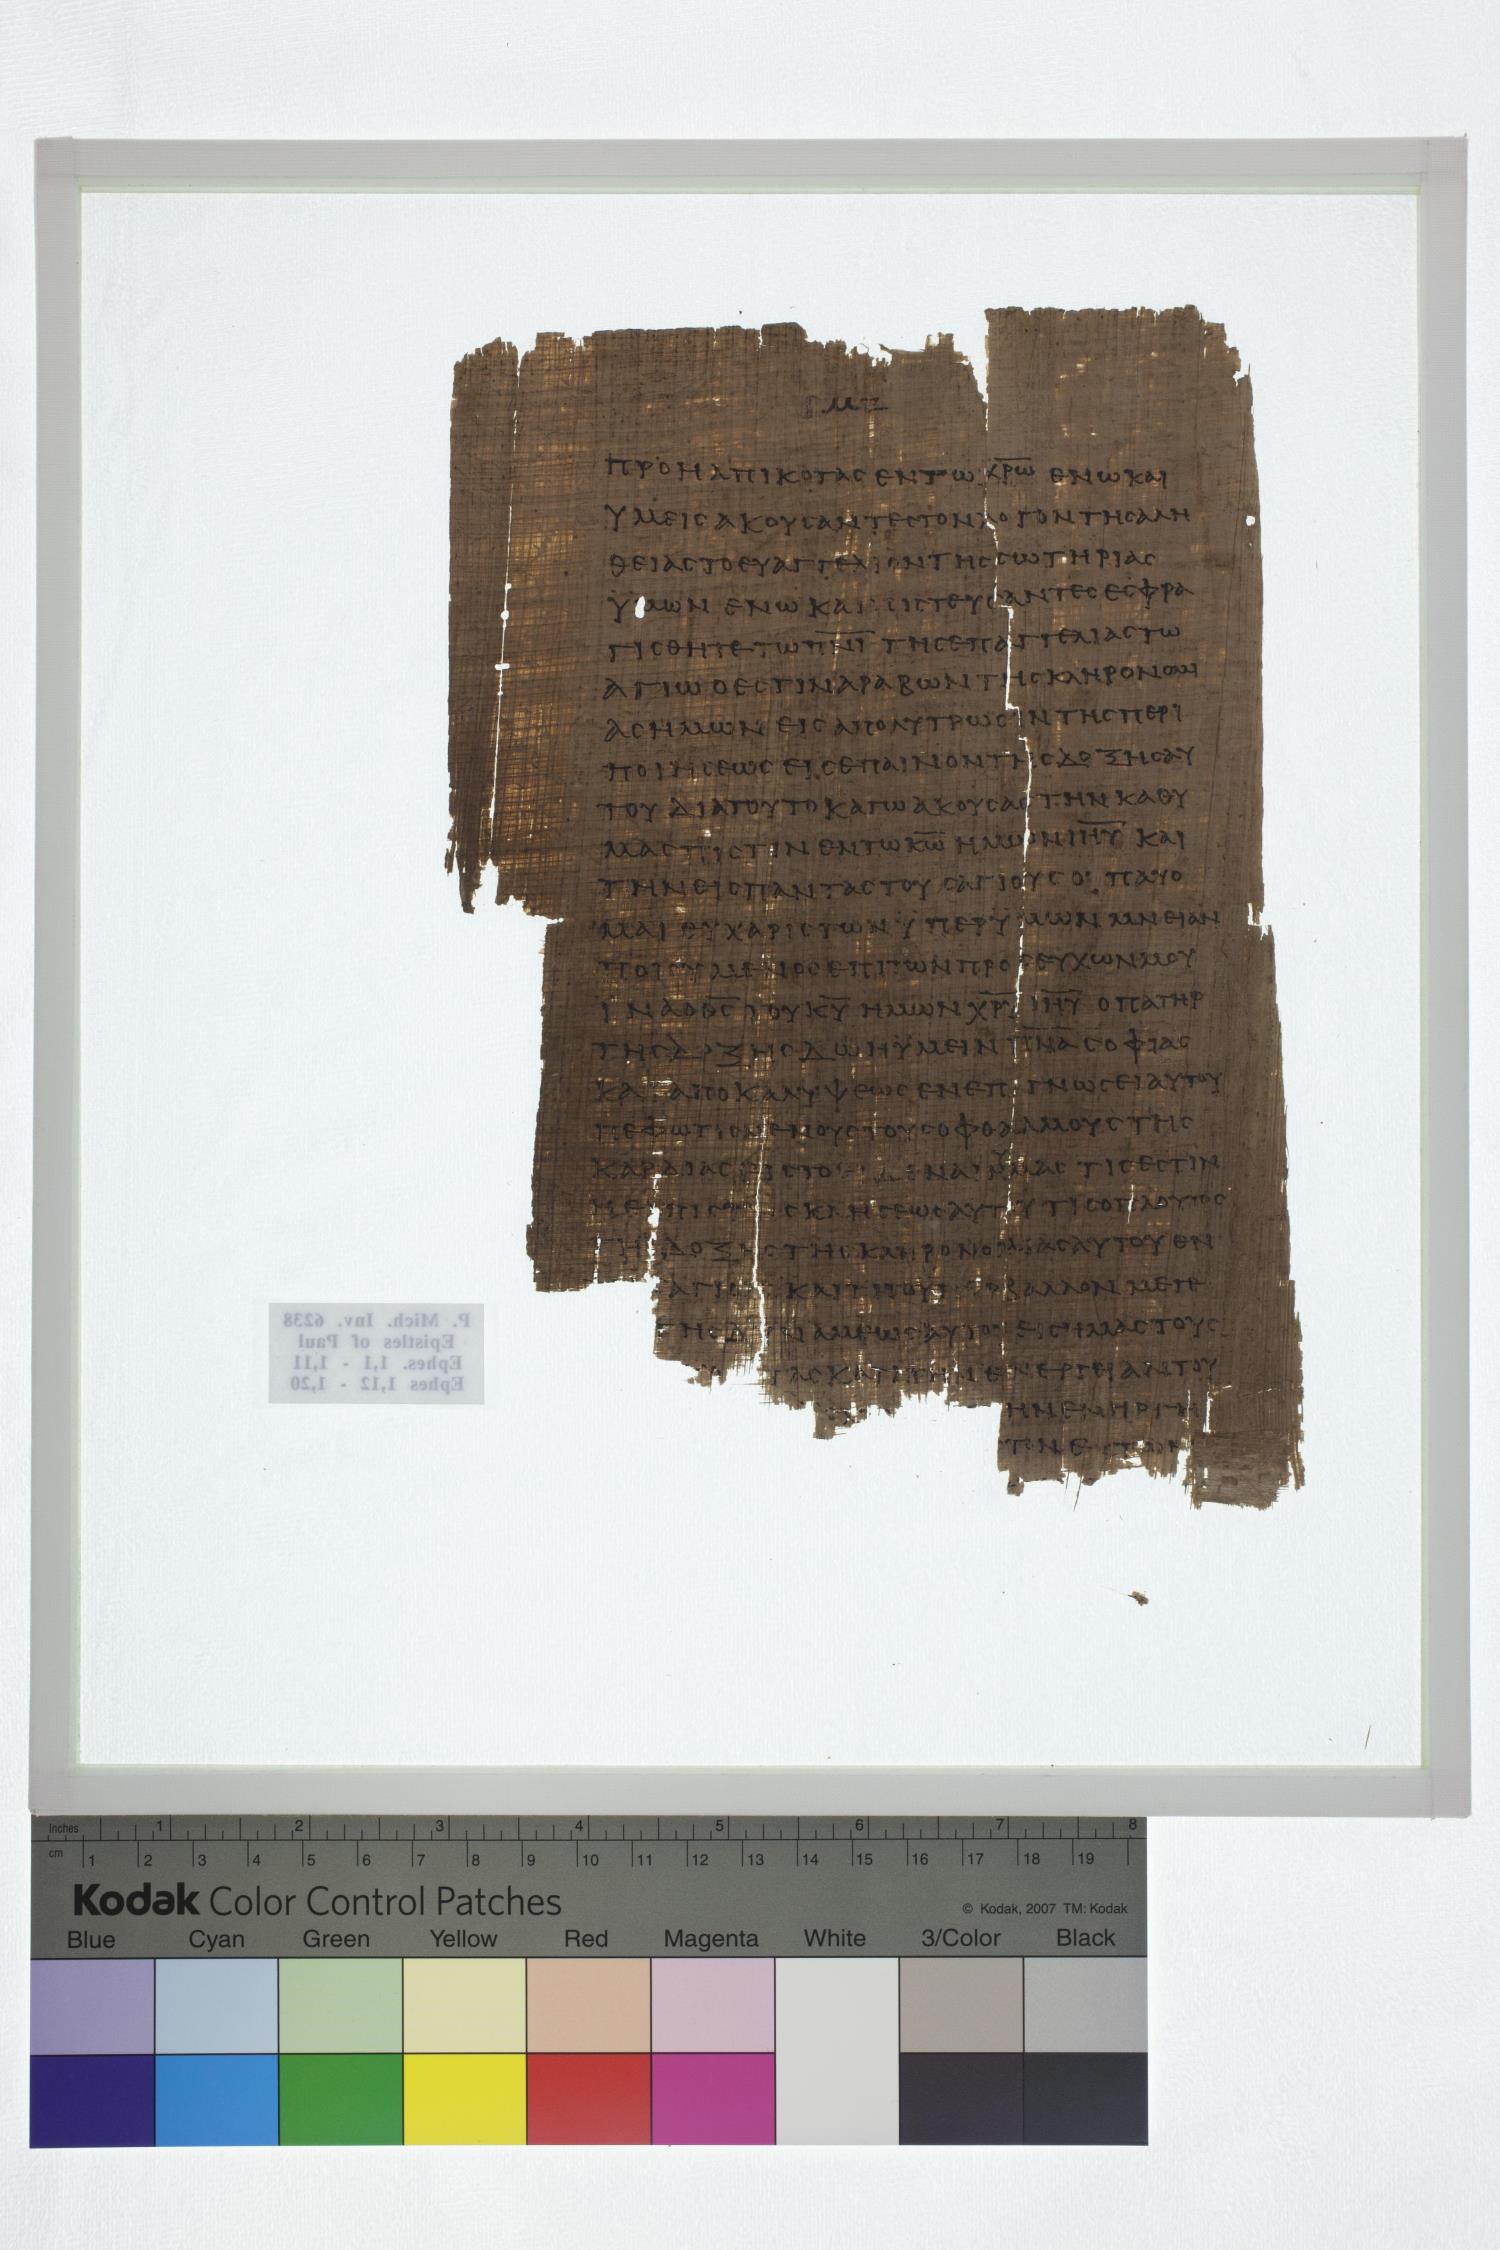 ΡΜΖ
ΠΡΟΗΛΠΙΚΟΤΑΣ ΕΝ ΤΩ ΧΡΩ ΕΝ Ω ΚΑΙ
ΥΜΕΙΣ ΑΚΟΥΣΑΝΤΕΣ ΤΟΝ ΛΟΓΟΝ ΤΗΣ ΑΛΗ
ΘΕΙΑΣ ΤΟ ΕΥΑΓΓΕΛΙΟΝ ΤΗΣ ΣΩΤΗΡΙΑΣ
ΫΜΩΝ ΕΝ Ω ΚΑΙ ΠΙΣΤΕΥΣΑΝΤΕΣ ΕΣΦΡΑ
ΓΙΣΘΗΤΕ ΤΩ ΠΝΙ ΤΗΣ ΕΠΑΓΓΕΛΙΑΣ ΤΩ
ΑΓΙΩ Ο ΕΣΤΙΝ ΑΡΑΒΩΝ ΤΗΣ ΚΛΗΡΟΝΟΜΙ
ΑΣ ΗΜΩΝ ΕΙΣ ΑΠΟΛΥΤΡΩΣΙΝ ΤΗΣ ΠΕΡΙ
ΠΟΙΗΣΕΩΣ ΕΙΣ ΕΠΑΙΝΟΝ ΤΗΣ ΔΟΞΗΣ ΑΥ
ΤΟΥ ΔΙΑ ΤΟΥΤΟ ΚΑΓΩ ΑΚΟΥΣΑΣ ΤΗΝ ΚΑΘ Υ
ΜΑΣ ΠΙΣΤΙΝ ΕΝ ΤΩ ΚΩ ΗΜΩΝ ΙΗΥ ΚΑΙ
ΤΗΝ ΕΙΣ ΠΑΝΤΑΣ ΤΟΥΣ ΑΓΙΟΥΣ ΟΥ ΠΑΥΟ
ΜΑΙ ΕΥΧΑΡΙΣΤΩΝ ΫΠΕΡ ΫΜΩΝ ΜΝΕΙΑΝ
ΠΟΙΟΥΜΕΝΟΣ ΕΠΙ ΤΩΝ ΠΡΟΣΕΥΧΩΝ ΜΟΥ
ΙΝΑ Ο ΘΣ ΤΟΥ ΚΥ ΗΜΩΝ ΧΡΥ ΙΗΥ Ο ΠΑΤΗΡ
ΤΗΣ ΔΟΞΗΣ ΔΩΗ ΫΜΕΙΝ ΠΝΑ ΣΟΦΙΑΣ
ΚΑΙ ΑΠΟΚΑΛΥΨΕΩΣ ΕΝ ΕΠΙΓΝΩΣΕΙ ΑΥΤΟΥ
ΠΕΦΩΤΙΣΜΕΝΟΥΣ ΤΟΥΣ ΟΦΘΑΛΜΟΥΣ ΤΗΣ
ΚΑΡΔΙΑΣ ΕΙΣ ΤΟ ΕΙΔΕΝΑΙ ΫΜΑΣ ΤΙΣ ΕΣΤΙΝ
Η ΕΛΠΙΣ ΤΗΣ ΚΛΗΣΕΩΣ ΑΥΤΟΥ ΤΙΣ Ο ΠΛΟΥΤΟΣ
ΤΗΣ ΔΟΞΗΣ ΤΗΣ ΚΛΗΡΟΝΟΜΙΑΣ ΑΥΤΟΥ ΕΝ
ΑΓΙΟΙΣ ΚΑΙ ΤΙ ΤΟ ΥΠΕΡΒΑΛΛΟΝ ΜΕΓΕ
ΤΗΣ ΔΥΝΑΜΕΩΣ ΑΥΤΟΥ ΕΙΣ ΗΜΑΣ ΤΟΥΣ
ΤΑΣ ΚΑΤΑ ΤΗΝ ΕΝΕΡΓΕΙΑΝ ΤΟΥ
ΗΝ ΕΝΗΡΓΗ
ΤΟΝ ΕΚ ΤΩΝ
P. Mich. Inv. 6238
Epistles of Paul
Ephes. 1,1 - 1,11
Ephes 1,12 - 1,20
inches 1 2 3 4 5 6 7 8
cm 1 2 3 4 5 6 7 8 9 10 11 12 13 14 15 16 17 18 19
Kodak Color Control Patches
© Kodak, 2007 TM: Kodak
Blue Cyan Green Yellow Red Magenta White 3/Color Black